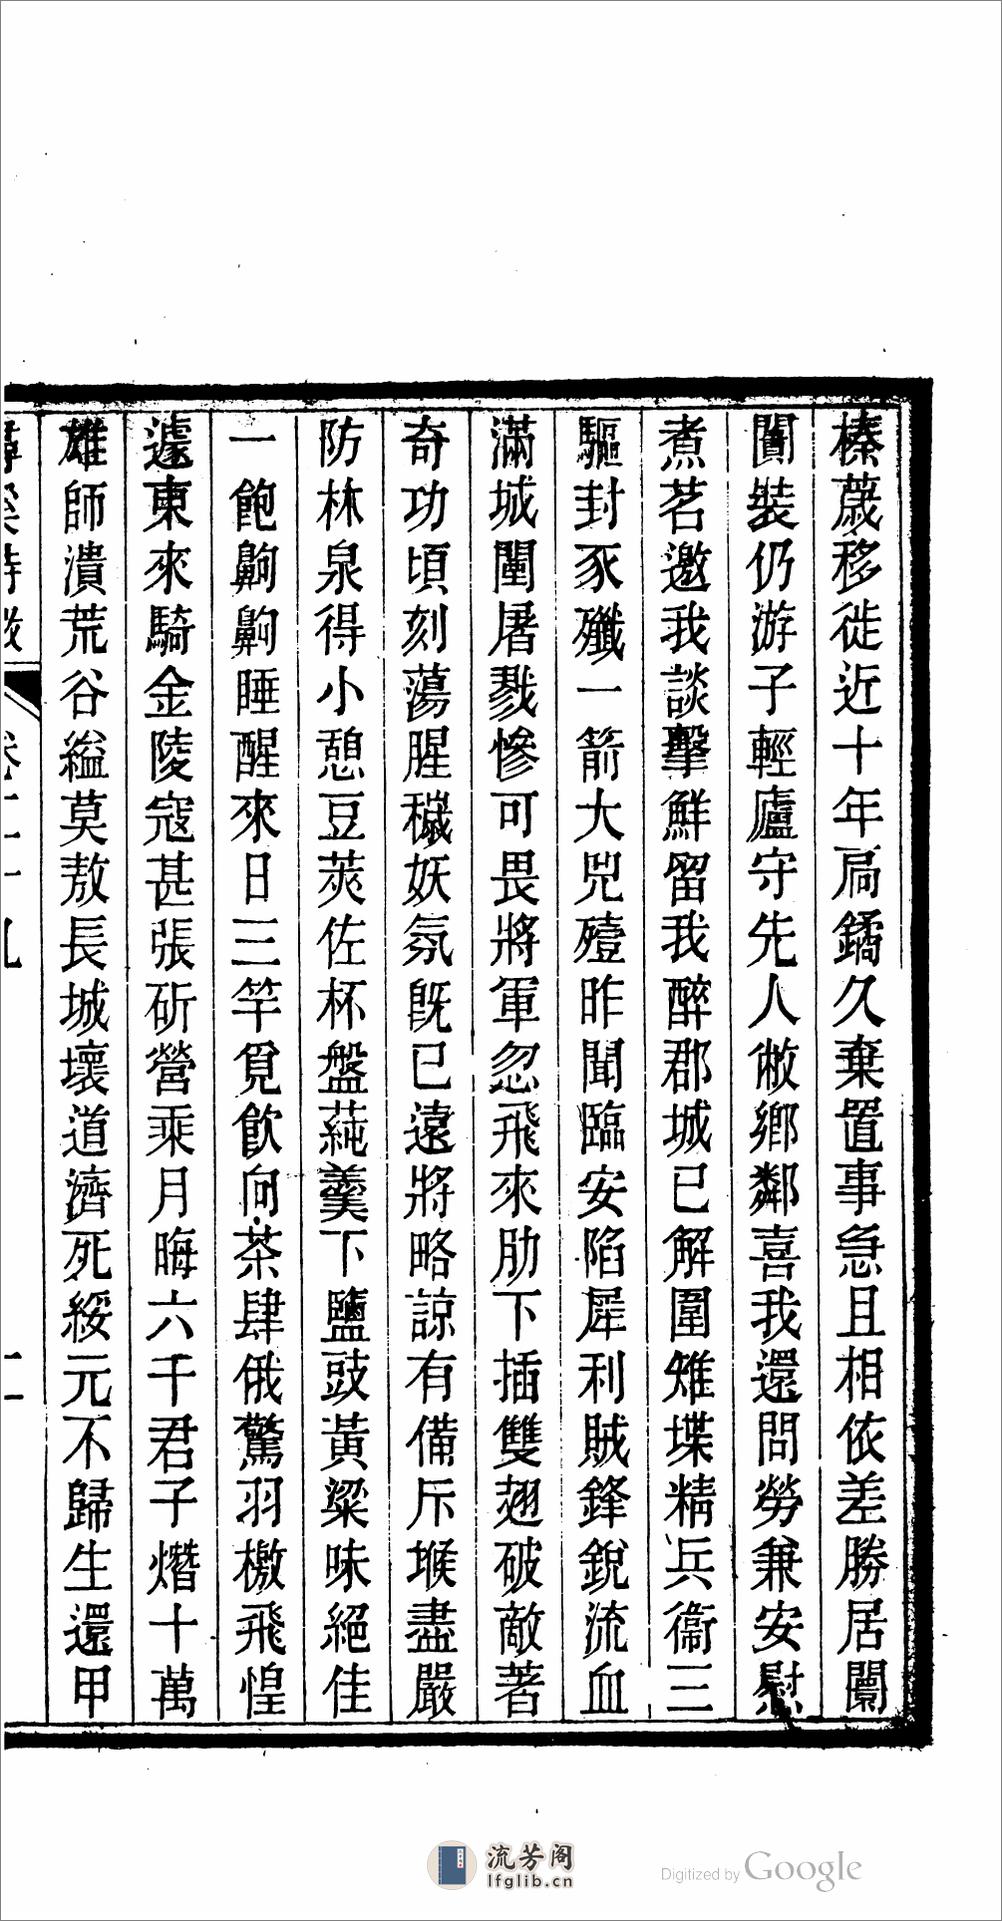 榛薉移徙近十年扃鐍久棄置事急且相依差勝居闤
闠裝仍游子輕廬守先人敝鄉鄰喜我還問勞兼安慰
煮茗邀我談擊鮮留我醉郡城已解圍雉堞精兵衞三
驅封豕殲一箭大兕殪昨聞臨安陷犀利賊鋒銳流血
滿城闉屠戮慘可畏將軍忽飛來肋下插雙翅破敵著
奇功頃刻蕩腥穢妖氛旣已遠將略諒有備斥堠盡嚴
防林泉得小憩豆莢佐杯盤蒓羹下鹽豉黃粱味絕佳
一飽齁齁睡醒來日三竿覓飮向茶肆俄驚羽檄飛惶
遽東來騎金陵寇甚張斫營乘月晦六千君子熸十萬
雄師潰荒谷縊莫敖長城壞道濟死綏元不歸生還甲
流芳阁
lfglib.cn
Digitized by Google